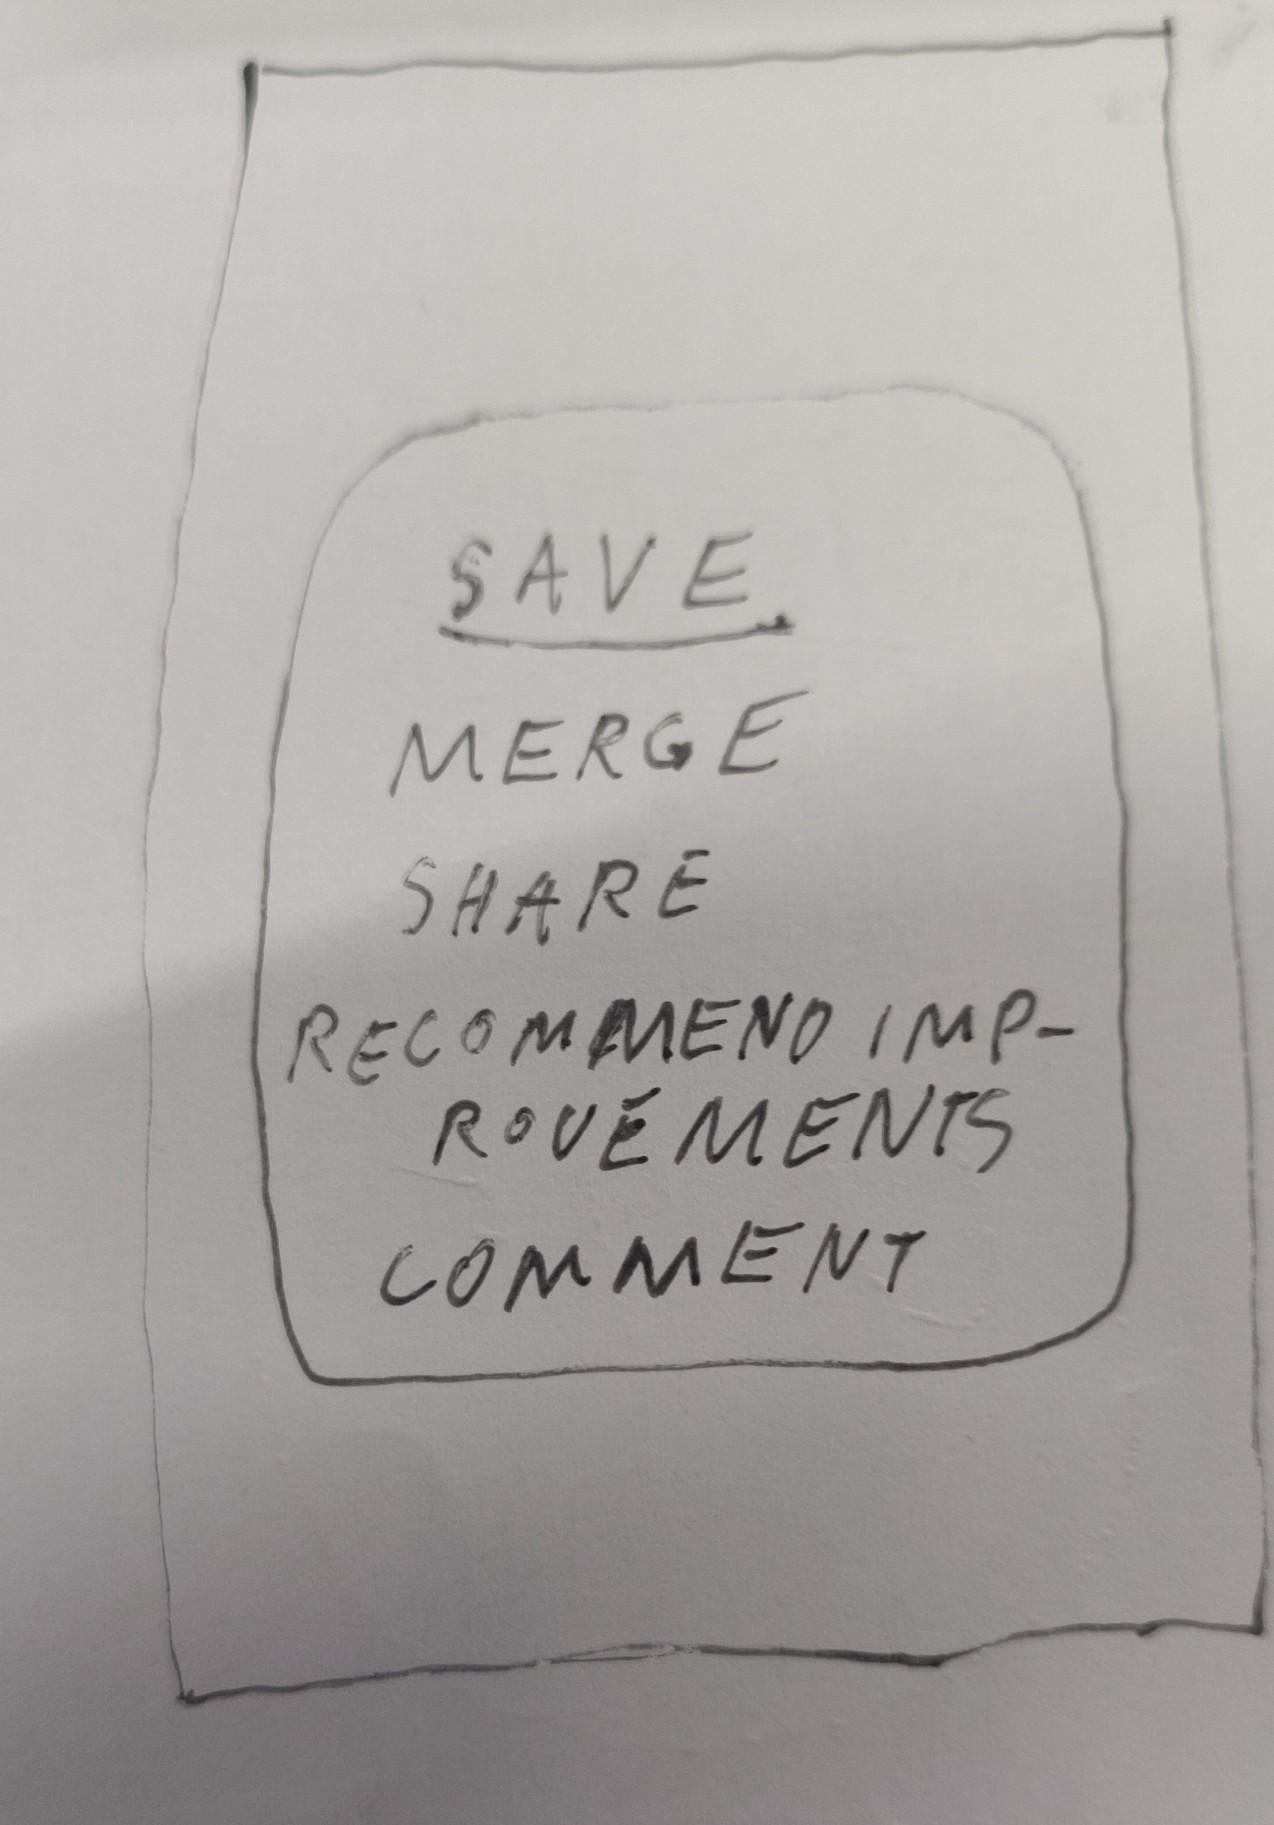 SAVE
MERGE
SHARE
RECOMMEND IMP-
ROVEMENTS
COMMENT